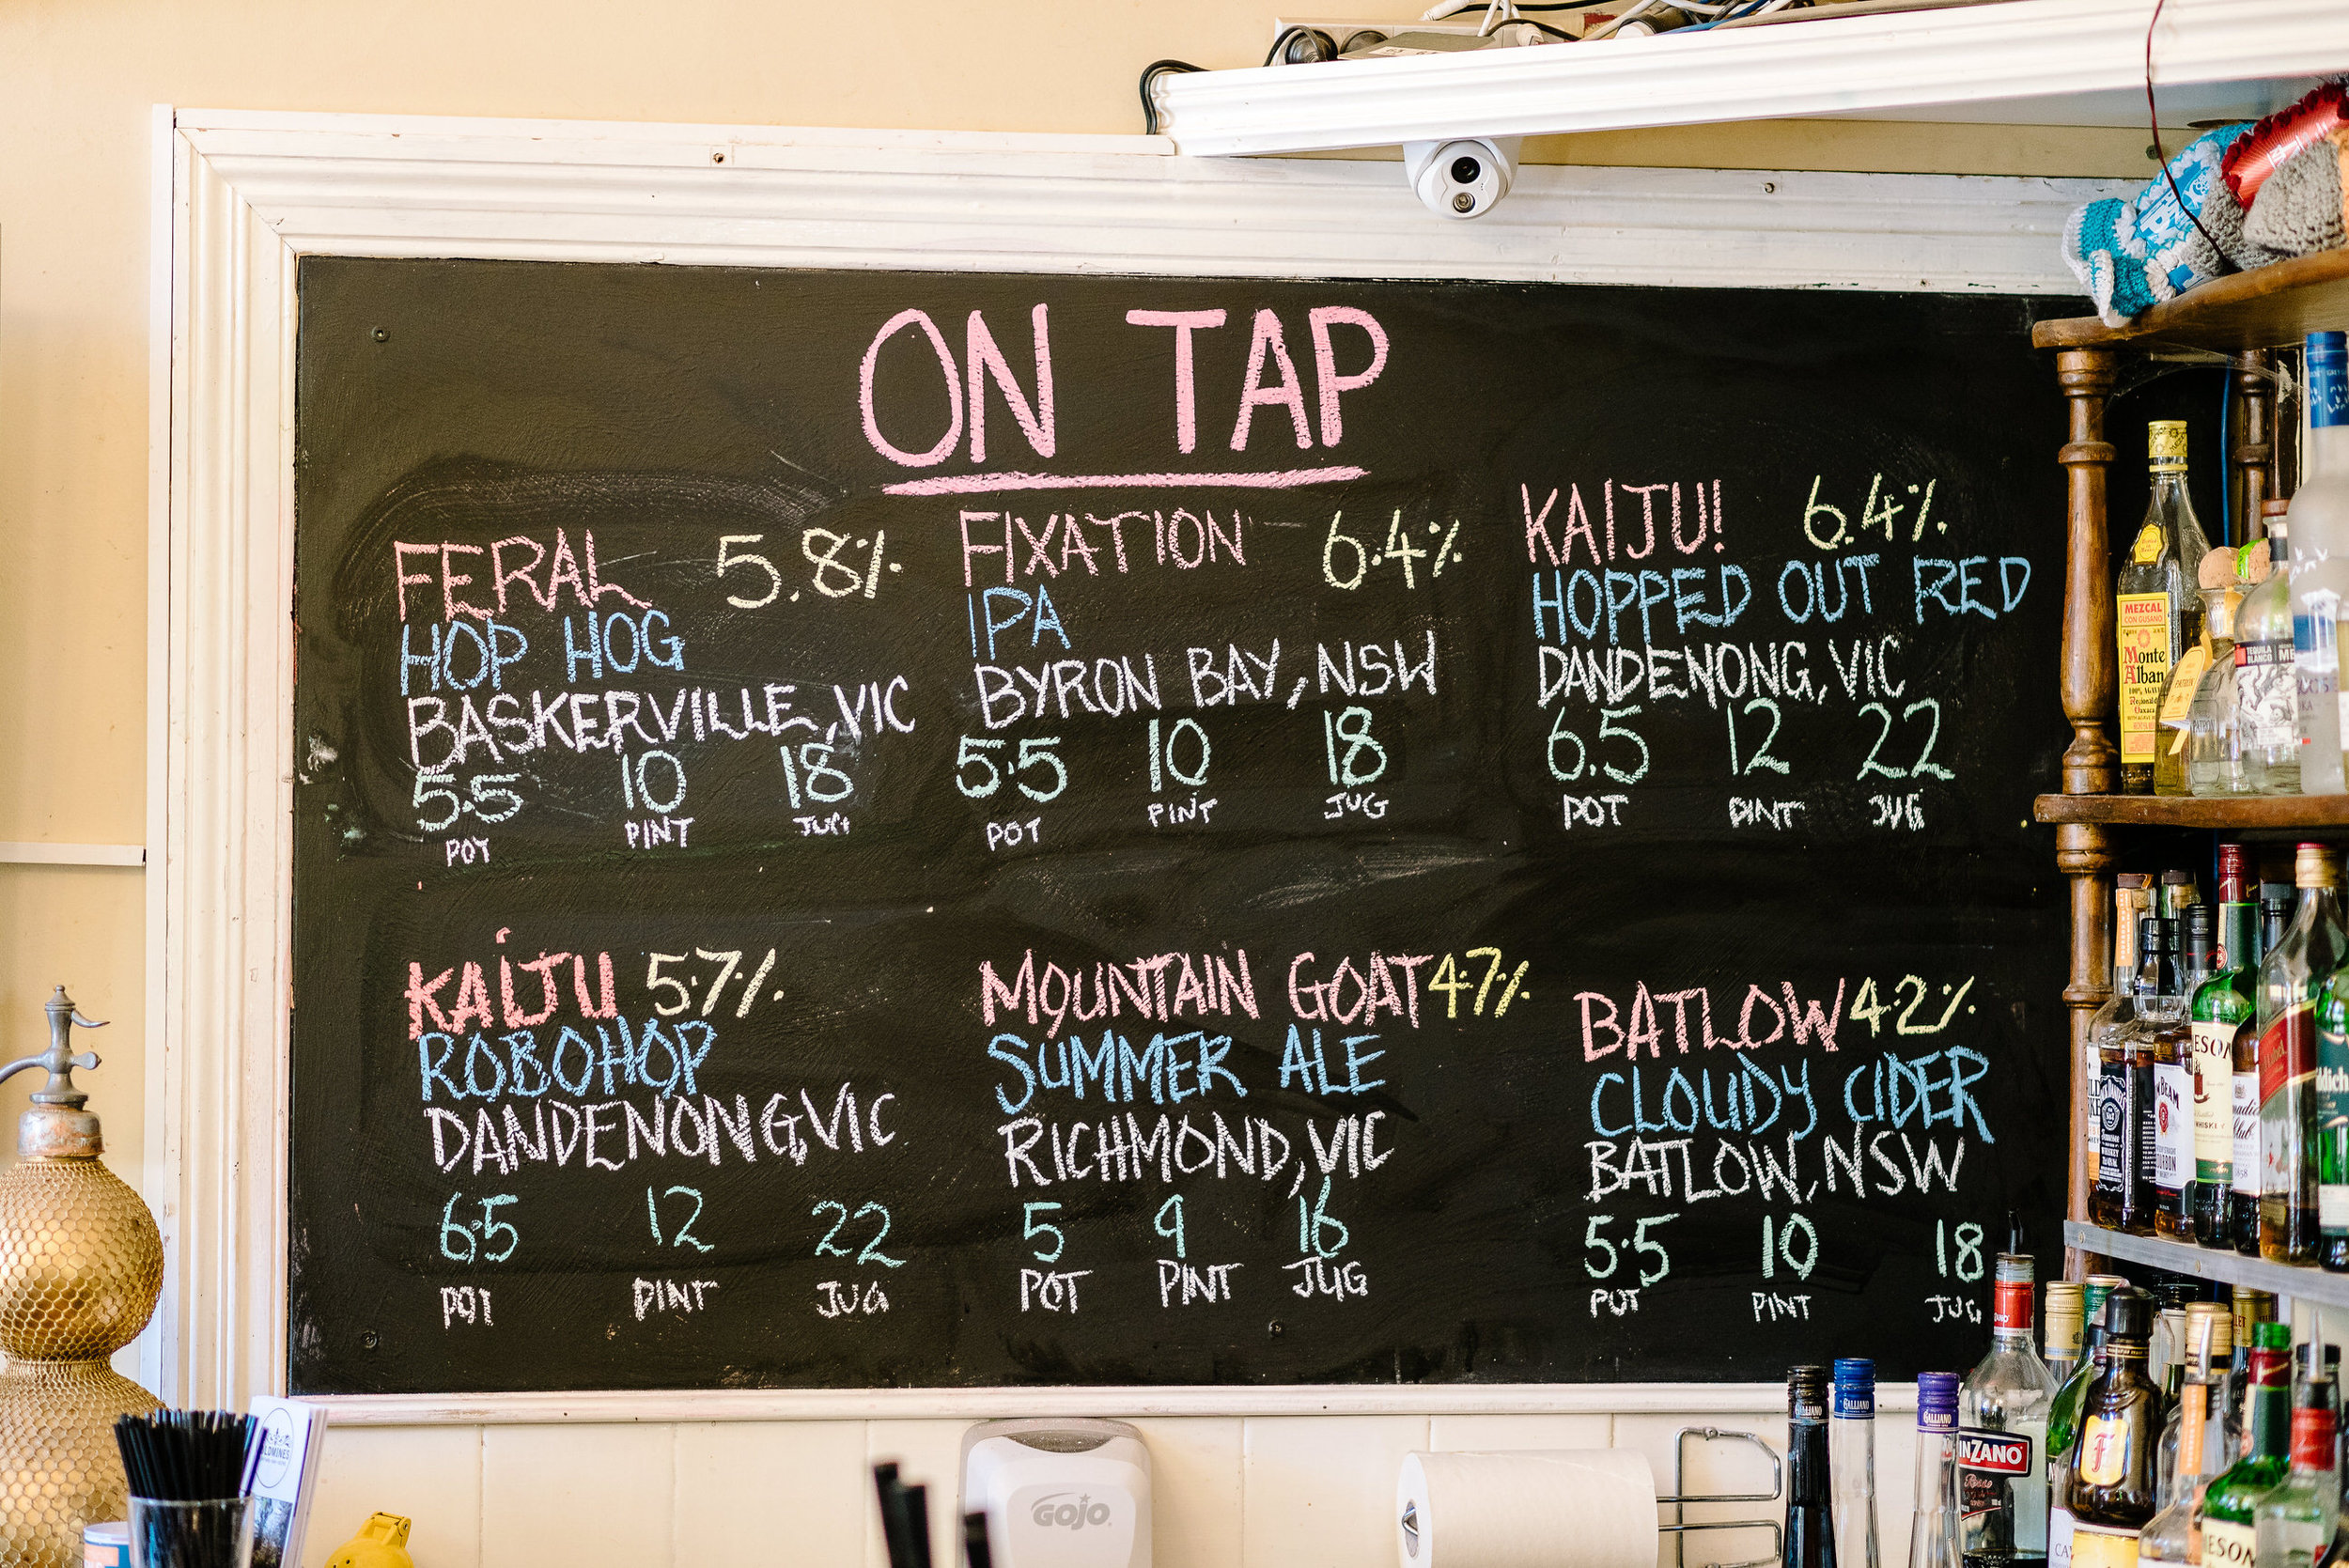 ON TAP
FERAL 5.8%
HOP HOG
BASKERVILLE, VIC
5.5 10 18
POT PINT JUG
FIXATION 6.4%
IPA
BYRON BAY, NSW
5.5 10 18
POT PINT JUG
KAIJU! 6.4%
HOPPED OUT RED
DANDENONG, VIC
6.5 12 22
POT PINT JUG
KAIJU 5.7%
ROBOHOP
DANDENONG, VIC
6.5 12 22
POT PINT JUG
MOUNTAIN GOAT 4.7%
SUMMER ALE
RICHMOND, VIC
5 9 16
POT PINT JUG
BATLOW 4.2%
CLOUDY CIDER
BATLOW, NSW
5.5 10 18
POT PINT JUG
MEZCAL
CON GUSANO
Monte
Alban
GOJO
GALLIANO
GALLIANO
GALLIANO
INZANO